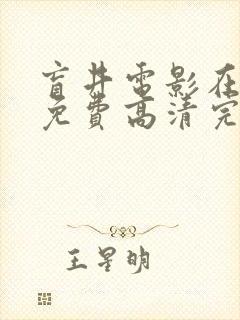 盲井电影在
免费高清完
王星明